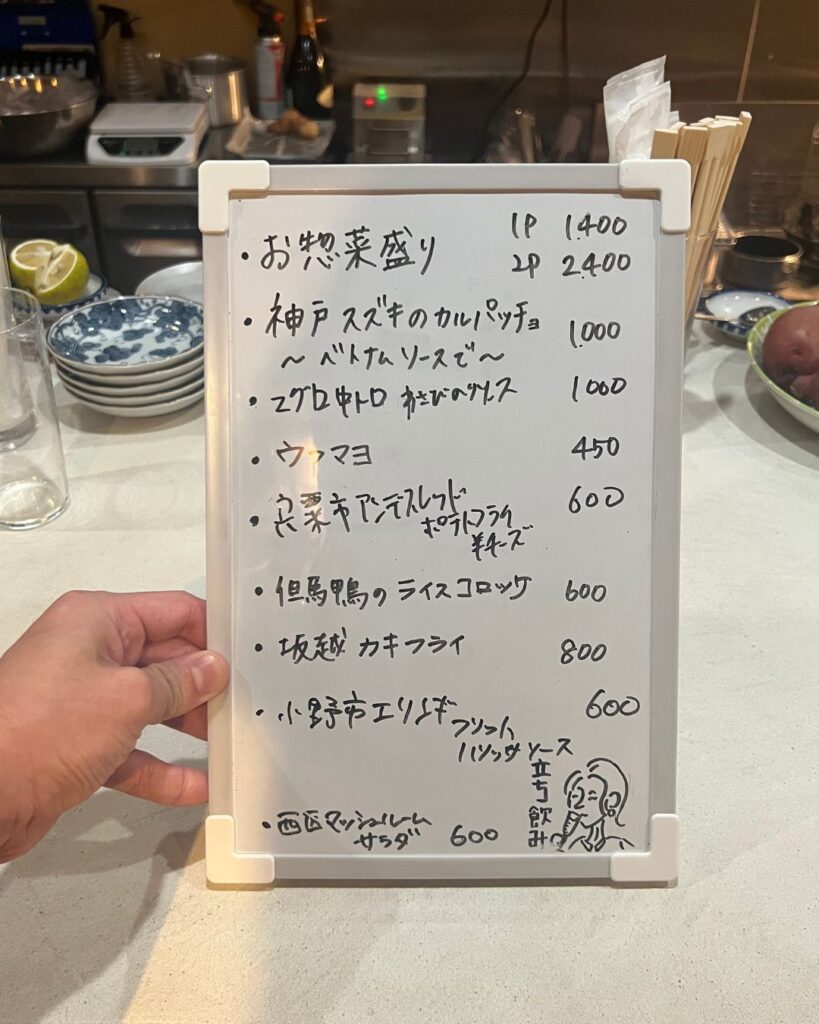 ・お惣菜盛り 1P 1.400
2P 2.400
・神戸スズキのカルパッチョ 1.000
〜ベトナムソースで〜
・マグロ中トロ わさびのソース 1000
・ウフマヨ 450
・宍粟市アンデスレッド 600
ポテトフライ
羊チーズ
・但馬鴨のライスコロッケ 600
・坂越カキフライ 800
・小野市エリンギ 600
フリット
ハリッサソース
・西区マッシュルーム
サラダ 600
立ち飲み